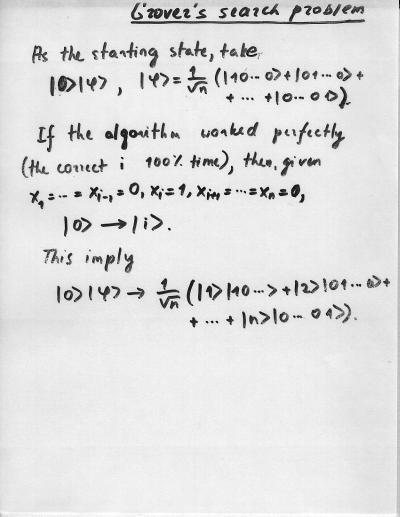 Grover's search problem
As the starting state, take
|0>|φ>, |φ> = 1/√n (|10...0>+|01...0>+
+ ... +|0...01>).
If the algorithm worked perfectly
(the correct i 100% time), then, given
x₁=...= xᵢ₋₁=0, xᵢ=1, xᵢ₊₁=...=xₙ=0,
|0> → |i>.
This imply
|0>|φ> → 1/√n (|1>|10...>+|2>|01...0>+
+ ... + |n>|0...01>).